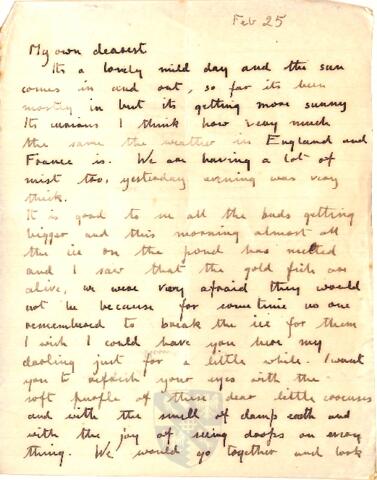 Feb 25
My own dearest
Its a lovely mild day and the sun
comes in and out, so far its been
mostly in but its getting more sunny
Its curious I think how very much
the same the weather in England and
France is. We are having a lot of
mist too, yesterday evening was very
thick.
It is good to see all the buds getting
bigger and this morning almost all
the ice on the pond has melted
and I saw that the gold fish are
alive, we were very afraid they would
not be because for sometime no one
remembered to break the ice for them
I wish I could have you here my
darling just for a little while. I want
you to refresh your eyes with the
soft purple of these dear little crocuses
and with the smell of damp earth and
with the joy of seeing drops on every
thing. We would go together and look